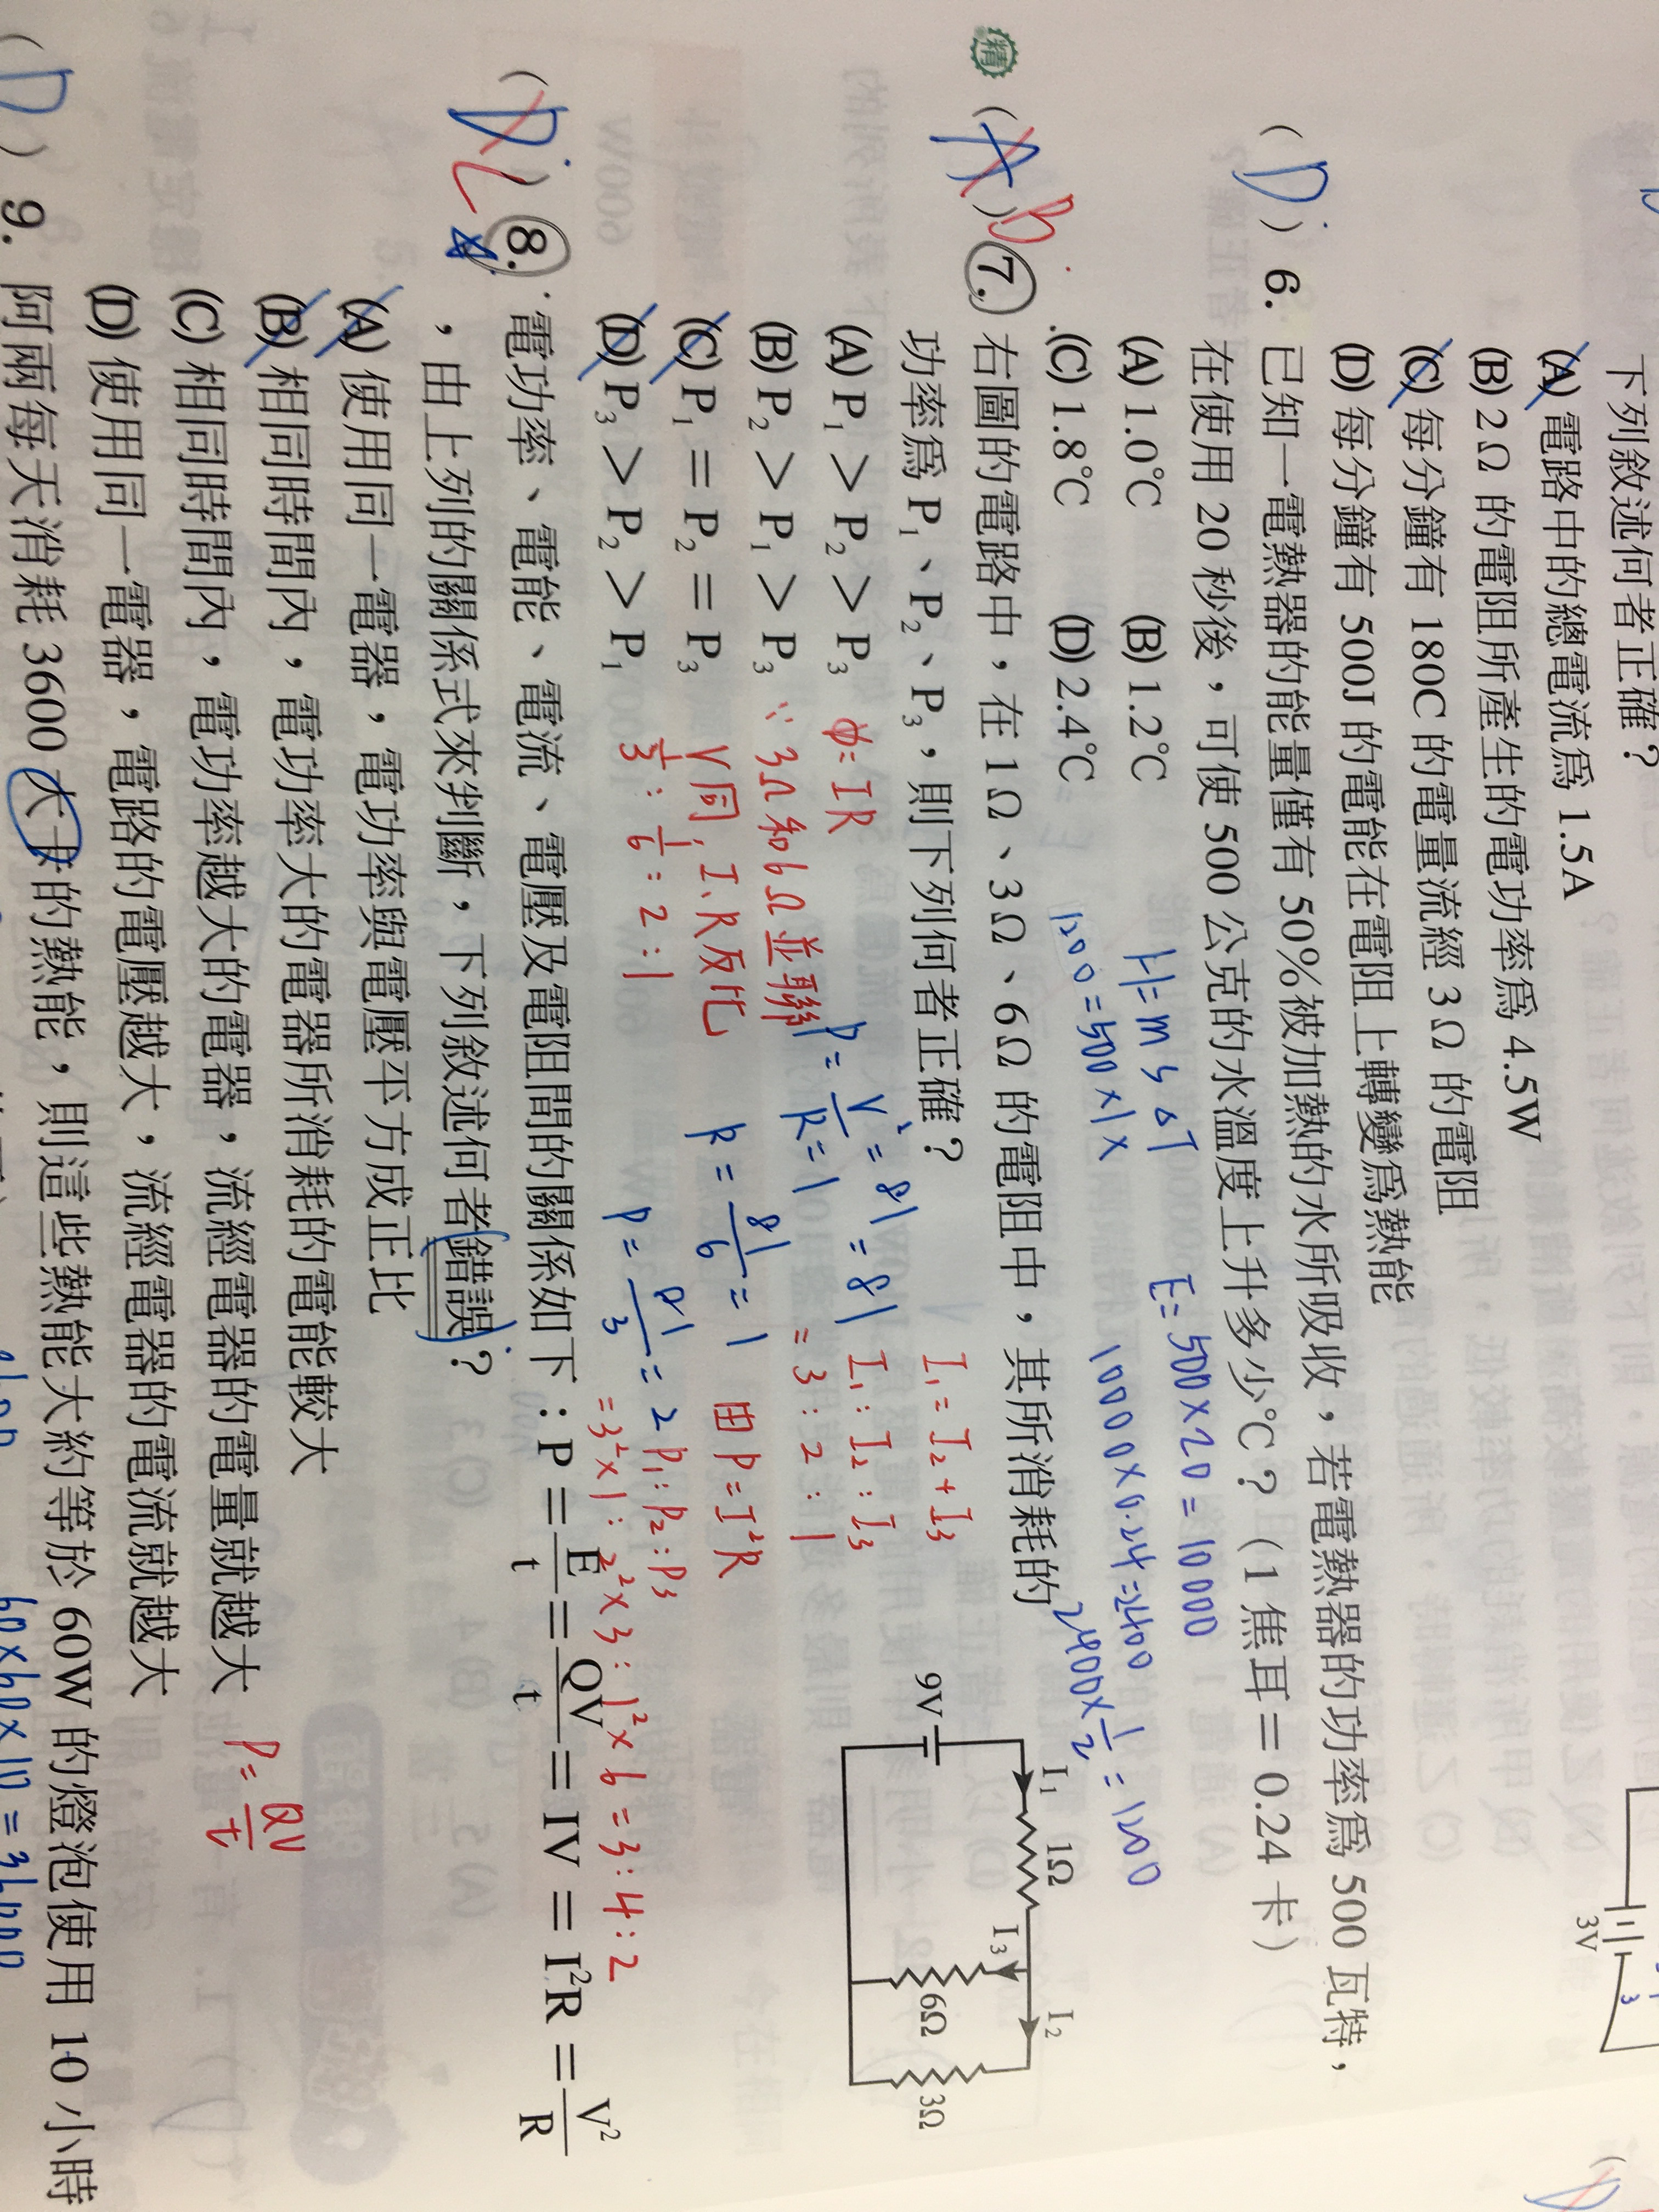 下列敘述何者正確？
(A) 電路中的總電流為 1.5A
(B) 2Ω 的電阻所產生的電功率為 4.5W
(C) 每分鐘有 180C 的電量流經 3Ω 的電阻
(D) 每分鐘有 500J 的電能在電阻上轉變為熱能
3V
3
( D ) 6. 已知一電熱器的能量僅有 50%被加熱的水所吸收，若電熱器的功率為 500 瓦特，
在使用 20 秒後，可使 500 公克的水溫度上升多少℃？（1 焦耳＝ 0.24 卡）
(A) 1.0℃ (B) 1.2℃
(C) 1.8℃ (D) 2.4℃
H = m s ΔT
1200 = 500 × 1 ×
E = 500 × 20 = 10000
10000 × 0.24 = 2400
2400 × 1/2 = 1200
精 ( A ) B 7. 右圖的電路中，在 1Ω、3Ω、6Ω 的電阻中，其所消耗的
功率為 P₁、P₂、P₃，則下列何者正確？
(A) P₁ > P₂ > P₃
(B) P₂ > P₁ > P₃
(C) P₁ = P₂ = P₃
(D) P₃ > P₂ > P₁
= IR
∵ 3Ω 和 6Ω 並聯
V同, I、R反比
1/3 : 1/6 = 2 : 1
P = V²/R = 81/1 = 81
P = 81/6 = 1
P = 81/3 = 2
I₁ = I₂ + I₃
I₁ : I₂ : I₃
= 3 : 2 : 1
由 P = I²R
P₁ : P₂ : P₃
= 3² × 1 : 2² × 3 : 1² × 6 = 3 : 4 : 2
9V
I₁ 1Ω
I₃ I₂
6Ω 3Ω
( D ) C 8. 電功率、電能、電流、電壓及電阻間的關係如下：P = E/t = QV/t = IV = I²R = V²/R
，由上列的關係式來判斷，下列敘述何者錯誤？
(A) 使用同一電器，電功率與電壓平方成正比
(B) 相同時間內，電功率大的電器所消耗的電能較大
(C) 相同時間內，電功率越大的電器，流經電器的電量就越大
P = QV/t
(D) 使用同一電器，電路的電壓越大，流經電器的電流就越大
( D ) 9. 阿兩每天消耗 3600 大卡的熱能，則這些熱能大約等於 60W 的燈泡使用 10 小時
60 × 60 × 10 = 36000